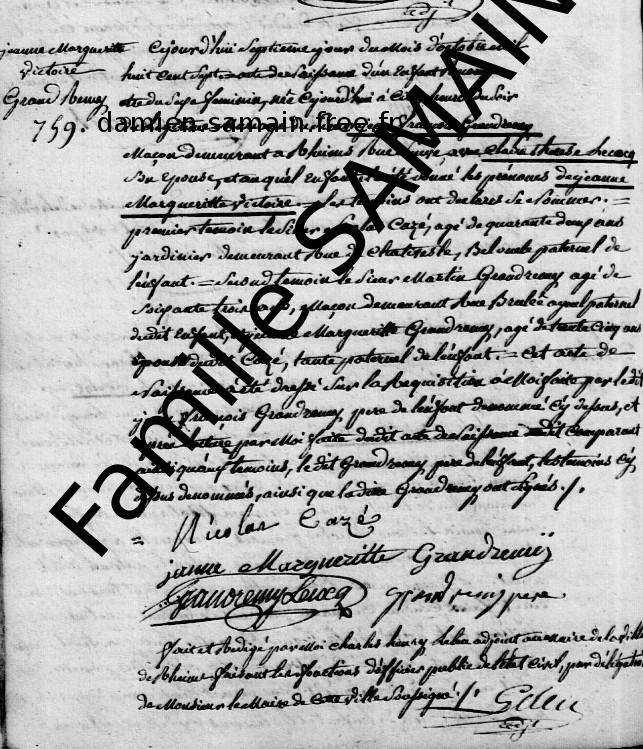 adjt
jeanne Margueritte
Victoire
Grand Remy
759.
Cejourd'hui Septieme jour du Mois d'octobre mil
huit cent Sept = acte de Naissance d'un Enfant
du Sexe feminin, née Cejourd'hui à Cinq heures du Soir
damien.samain.free.fr
françois Grandremy
Maçon demeurant a Rheims Rue
Son Epouse, et auquel Enfant a été donné les prénoms de jeanne
Margueritte Victoire = les temoins ont declarés de Nommer. =
premier temoin le Sieur Nicolas Cazé, agé de quarante deux ans
jardinier demeurant Rue de Bel oncle paternel de
l'enfant. = Second temoin le Sieur Martin Grandremy agé de
Soixante trois ans, Maçon demeurant Rue Brulée ayeul paternel
dudit Enfant, jeanne Margueritte Grandremy, agé de trente Cinq ans
Epouse dudit Cazé, tante paternel de l'enfant. = Cet acte de
Naissance a été dressé Sur la Requisition à Moi faite par ledit
françois Grandremy, pere de l'enfant denommé Cy dessus, et
après lecture par Moi faite dudit acte de Naissance audit Comparant
temoins, le dit Grandremy, pere de l'enfant, les temoins Cy
dessus denommés, ainsi que la dite Grandremy ont Signés ./.
Famille SAMAIN
= Nicolas Cazé
janne Margueritte Grandremy
Grandremy Lecoq
pere
fait et Redigé par Moi Charles henry adjoint au maire de la Ville
de Rheims faisant les fonctions d'officier public de l'état Civil, par délégation
de Monsieur le Maire de Cette Ville Soussigné
adjt